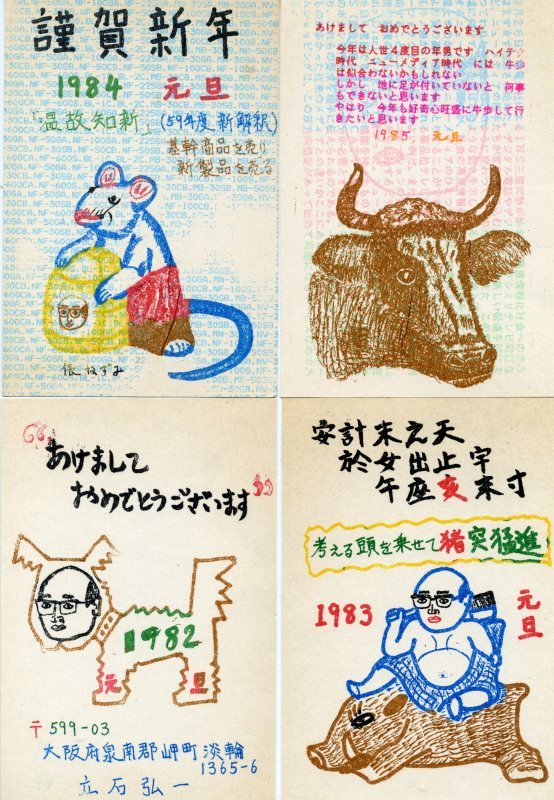 謹賀新年
1984 元旦
「温故知新」(59年度 新解釈)
基幹商品を売り
新製品を売る
俵ねずみ
あけまして　おめでとうございます
今年は人世４度目の年男です　ハイテク
時代　ニューメディア時代　には　牛歩
は似合わないかもしれない
しかし　地に足が付いていないと　何事
もできないと思います
やはり　今年も好奇心旺盛に牛歩して行
きたいと思います
1985. 元旦
“あけまして
おめでとうございます”
1982
元 旦
〒599-03
大阪府泉南郡岬町淡輪
1365-6
立石弘一
安計末之天
於女出止宇
午座亥末寸
考える頭を乗せて猪突猛進
1983 元旦